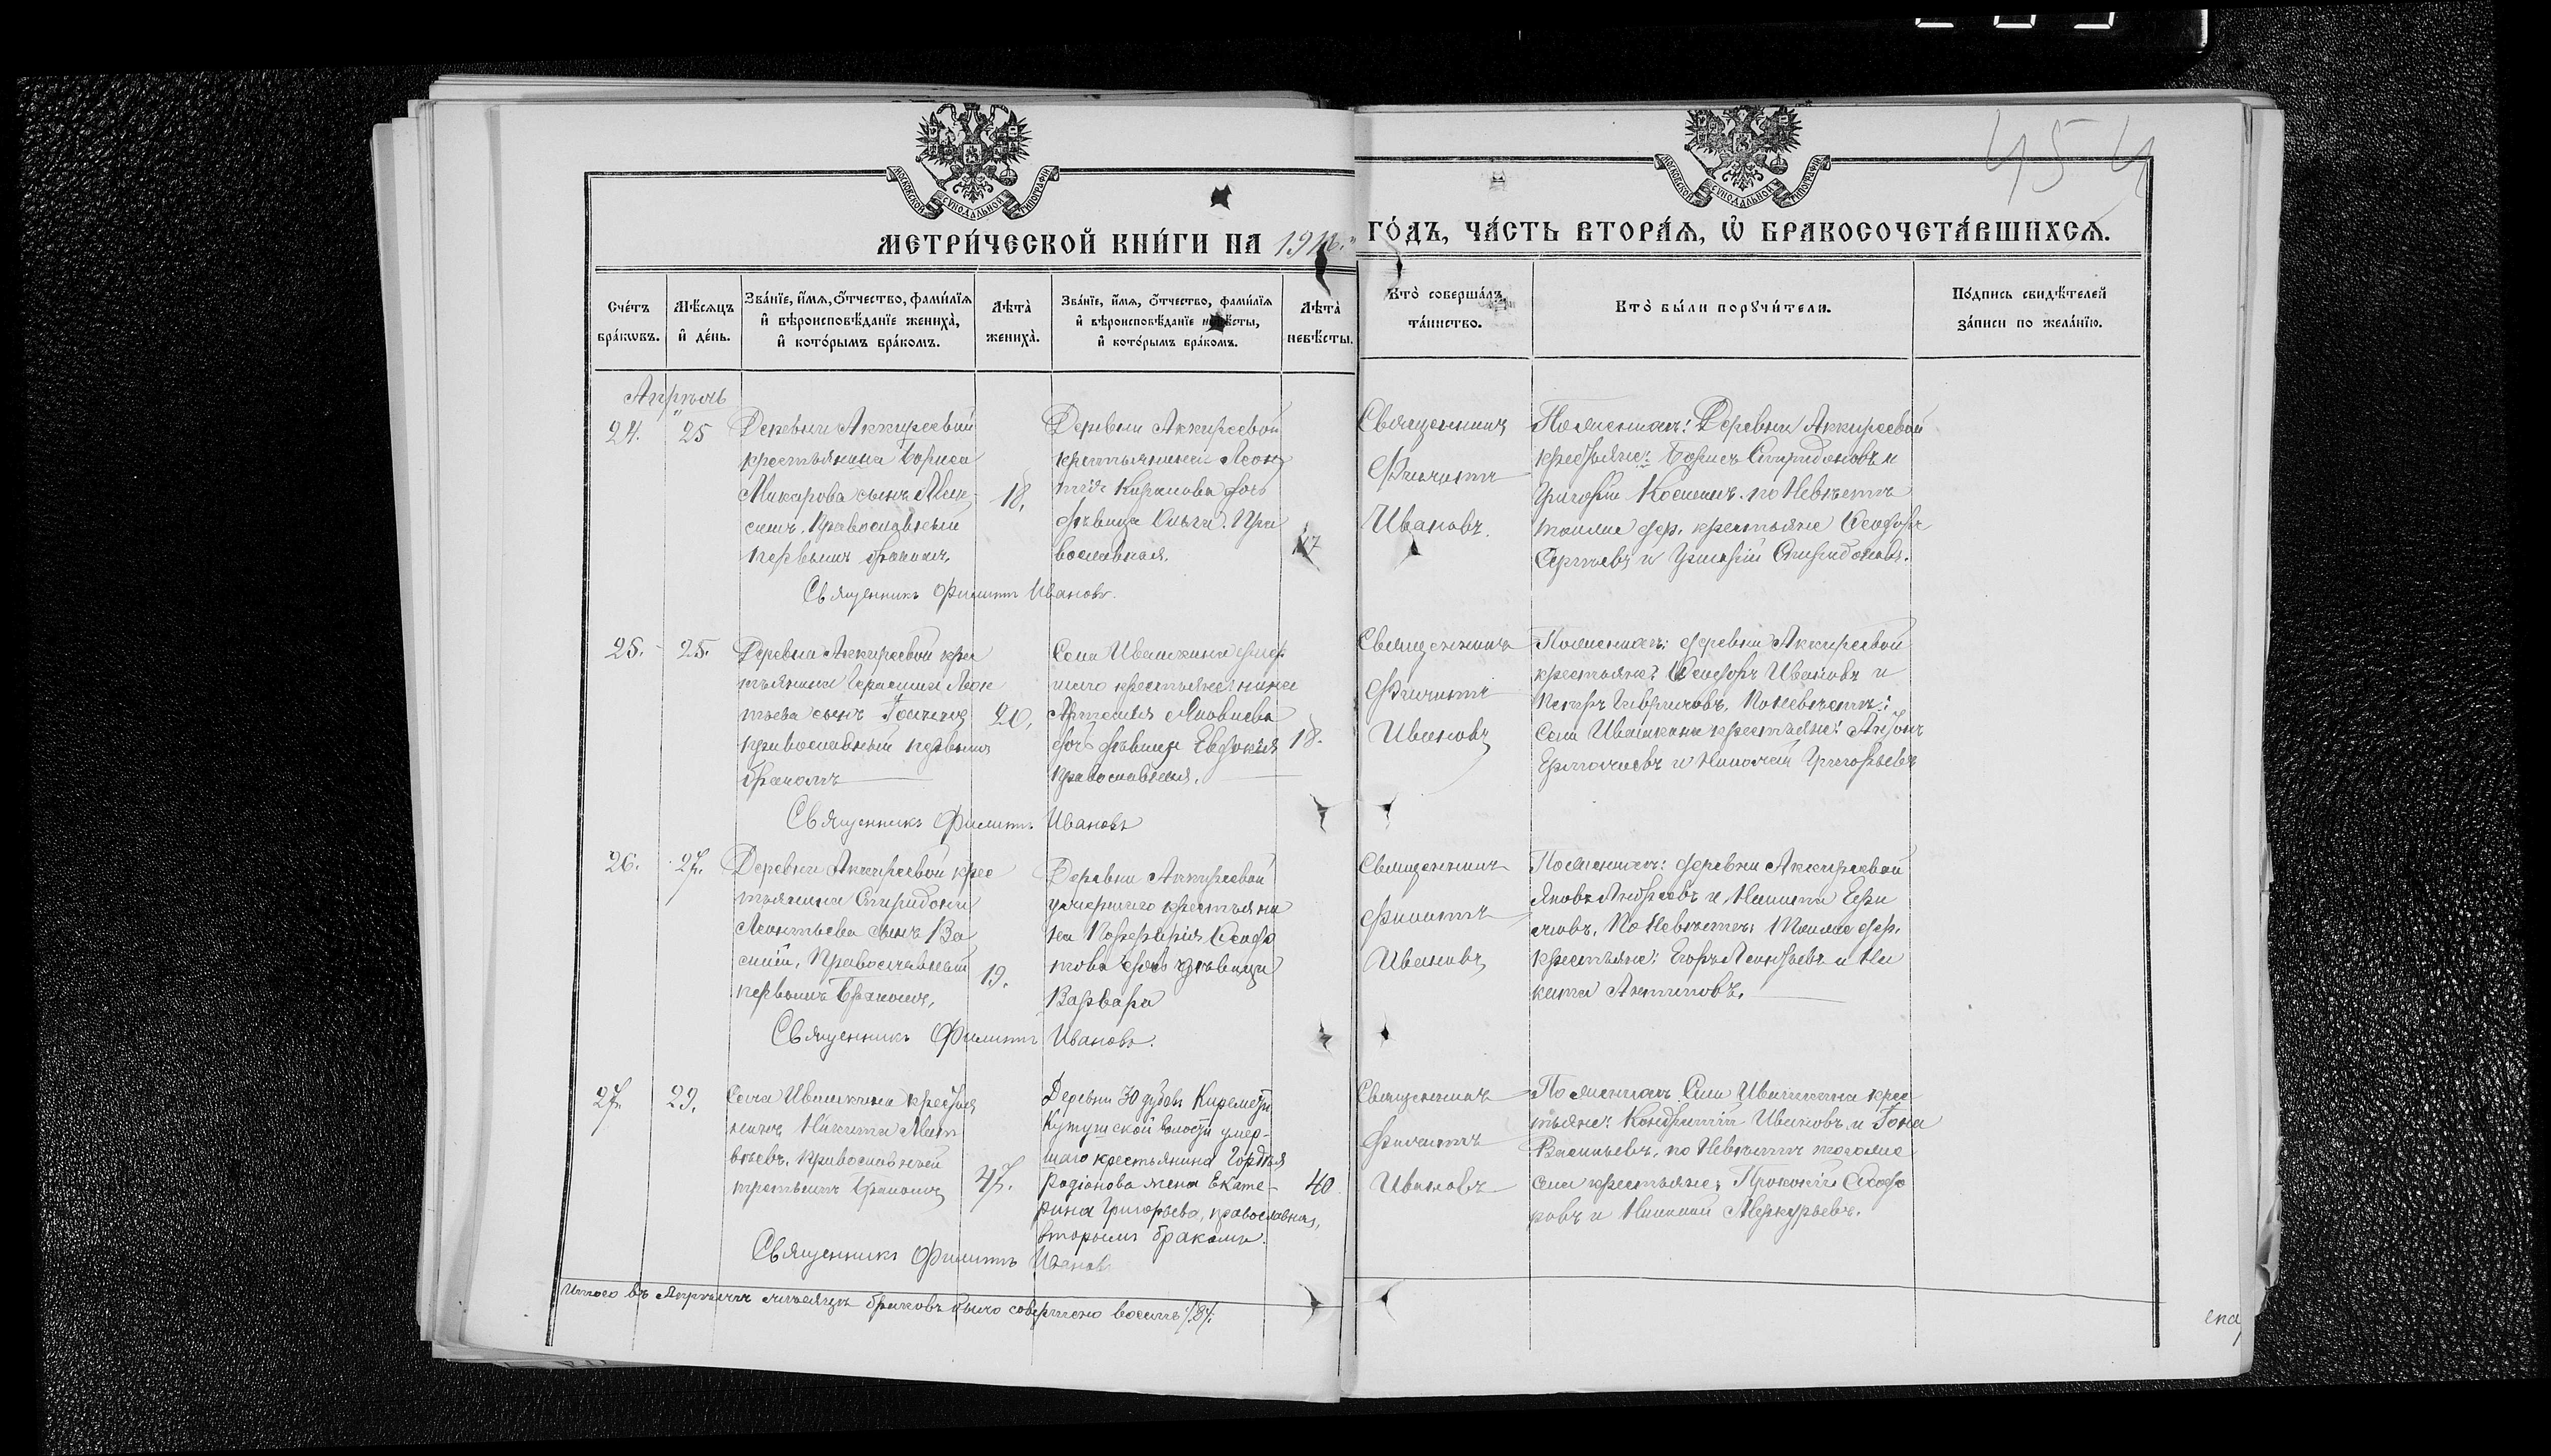 454
МОСКОВСКОЙ СѴНОДАЛЬНОЙ ТИПОГРАФІИ
МОСКОВСКОЙ СѴНОДАЛЬНОЙ ТИПОГРАФІИ
МЕТРИ́ЧЕСКОЙ КНИ́ГИ НА 191
ГО́ДЪ, ЧА́СТЬ ВТОРА́Я, Ѡ҆ БРАКОСОЧЕТА́ВШИХСѦ.
Сче́тъ бра́кѡвъ.
Мѣ́сѧцъ и҆ де́нь.
Зва́нїе, и҆́мѧ, ѻ҆́тчество, фами́лїѧ
и҆ вѣроисповѣ́данїе жениха̀,
и҆ кото́рымъ бра́комъ.
Лѣта̀ жениха̀.
Зва́нїе, и҆́мѧ, ѻ҆́тчество, фами́лїѧ
и҆ вѣроисповѣ́данїе невѣ́сты,
и҆ кото́рымъ бра́комъ.
Лѣта̀ невѣ́сты.
Кто̀ соверша́лъ
та́инство.
Кто̀ бы́ли порꙋчи́тели.
По́дпись свидѣ́телей
за́писи по жела́нїю.
Апрѣль
24. 25
Деревни Аккиреевой
крестьянина Бориса
Макарова сынъ Мак
симъ. Православный
первымъ бракомъ.
18.
Деревни Аккиреевой
крестьянина Леон
тія дочь
дѣвица Ольга. Пра
вославная.
17
Священникъ
Филиппъ
Ивановъ.
По женихѣ: Деревни Аккиреевой
крестьяне: Борисъ Спиридоновъ и
Григорій Косминъ. по Невѣстѣ
тоіже дер. крестьяне
Сергѣевъ и Григорій Спиридоновъ.
Священникъ Филиппъ Ивановъ.
25. 25.
Деревни Аккиреевой крес
тьянина Герасима Леон
тьева сынъ
православный первымъ
бракомъ
20.
Села Ивашкина умер
шаго крестьянина
Яковлева
дочь дѣвица Евдокія
православная.
18.
Священникъ
Филиппъ
Ивановъ
По женихѣ: деревни Аккиреевой
крестьяне: Ивановъ и
Петръ Гавриловъ. По невѣстѣ:
села Ивашкина крестьяне: Антонъ
Ермолаевъ и Николай Григорьевъ
Священникъ Филиппъ Ивановъ
26. 27.
Деревни Аккиреевой крес
тьянина Спиридона
Леонтьева сынъ Ва
силій, Православный
первымъ бракомъ.
19.
Деревни Аккиреевой
умершаго крестьяни
на Порфирія
това дочь дѣвица
Варвара
Священникъ
Филиппъ
Ивановъ
По женихѣ: деревни Аккиреевой
Яковъ Андреевъ и Никита Ефи
мовъ. По Невѣстѣ: тоіже дер.
крестьяне: Егоръ Леонтьевъ и Ни
кита Антиповъ.
Священникъ Филиппъ Ивановъ.
27. 29.
Села Ивашкина крестья
нинъ Никита Мат
вѣевъ. православный
третьимъ бракомъ
47.
Деревни 30 дубовъ Киремети
Кутушской волости умер-
шаго крестьянина Гордѣя
Родіонова жена Екате-
рина Григорьева, православная,
вторымъ бракомъ.
40
Священникъ
Филиппъ
Ивановъ
По женихѣ Села Ивашкина крес
тьяне: Кондратій Ивановъ и Гона
Васильевъ. по Невѣстѣ тогоже
села крестьяне: Прокопій Ѳеодо
ровъ и Николай Меркурьевъ.
Священникъ Филиппъ Ивановъ
Итого въ Апрѣлѣ мѣсяцѣ браковъ было совершено восемь /8/.